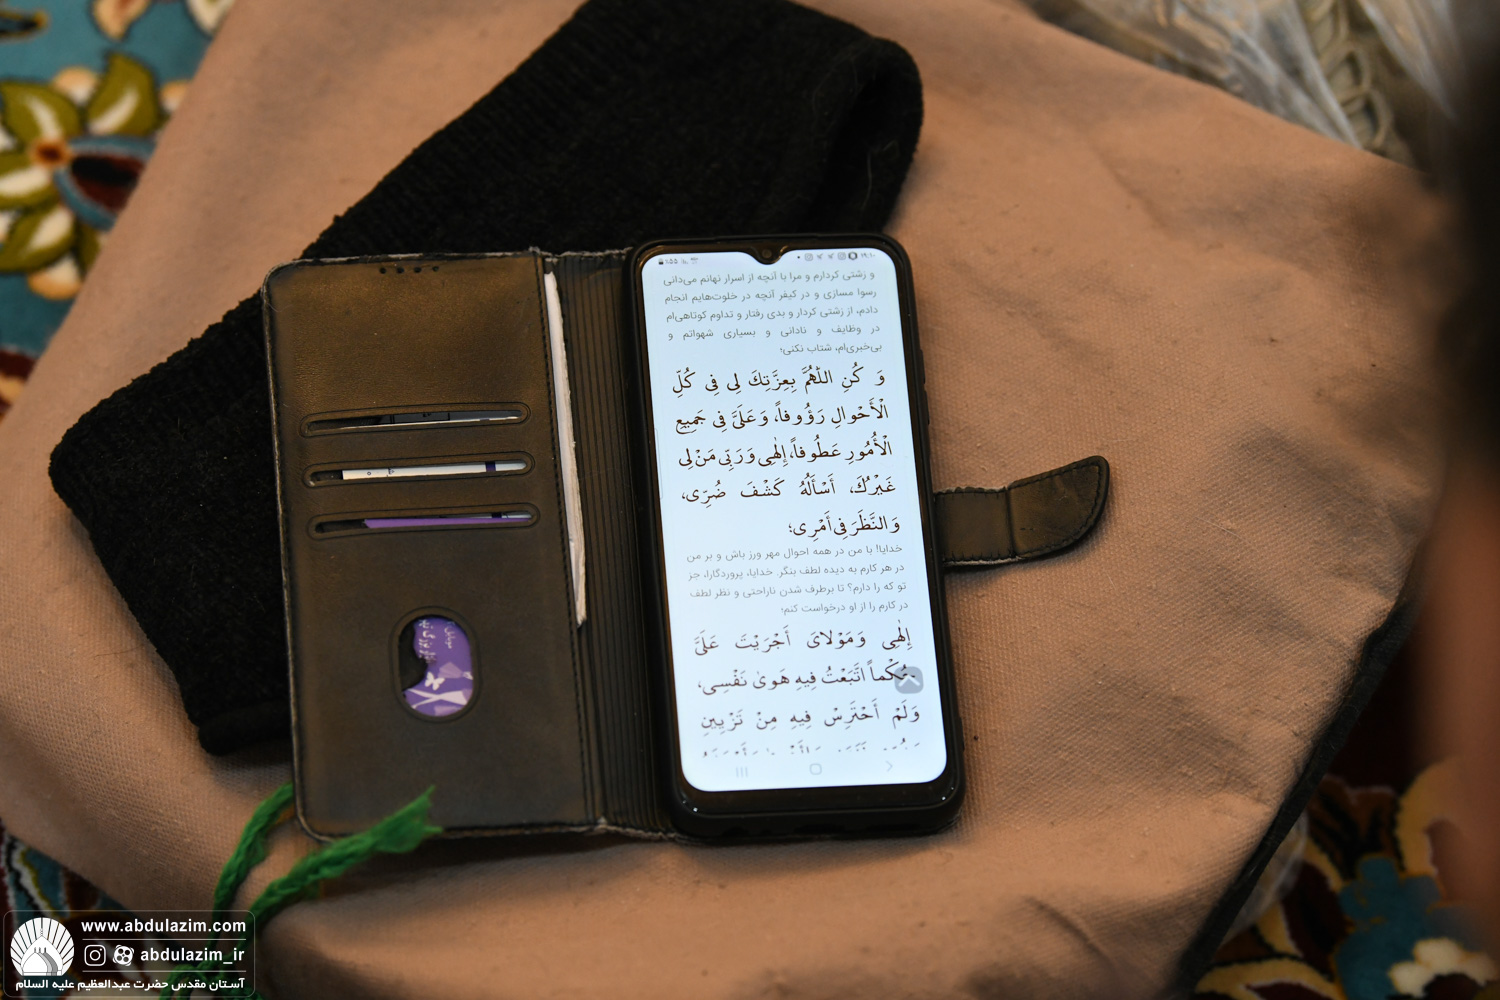 ۱۹:۱۰
و زشتی کردارم و مرا با آنچه از اسرار نهانم می‌دانی
رسوا مسازی و در کیفر آنچه در خلوت‌هایم انجام
دادم، از زشتی کردار و بدی رفتار و تداوم کوتاهی‌ام
در وظایف و نادانی و بسیاری شهواتم و
بی‌خبری‌ام، شتاب نکنی؛
وَ كُنِ اللّٰهُمَّ بِعِزَّتِكَ لِی فِی كُلِّ
الْأَحْوالِ رَؤُوفاً، وَعَلَیَّ فِی جَمِیعِ
الْأُمُورِ عَطُوفاً، إِلٰهِی وَرَبِّی مَنْ لِی
غَیْرُكَ، أَسْأَلُهُ كَشْفَ ضُرِّی،
وَالنَّظَرَ فِی أَمْرِی؛
خدایا! با من در همه احوال مهر ورز باش و بر من
در هر کارم به دیده لطف بنگر. خدایا، پروردگارا، جز
تو که را دارم؟ تا برطرف شدن ناراحتی و نظر لطف
در کارم را از او درخواست کنم؛
إِلٰهِی وَمَوْلایَ أَجْرَیْتَ عَلَیَّ
حُكْماً اتَّبَعْتُ فِیهِ هَویٰ نَفْسِی،
وَلَمْ أَحْتَرِسْ فِیهِ مِنْ تَزْیِینِ
www.abdulazim.com
abdulazim_ir
آستان مقدس حضرت عبدالعظیم علیه السلام